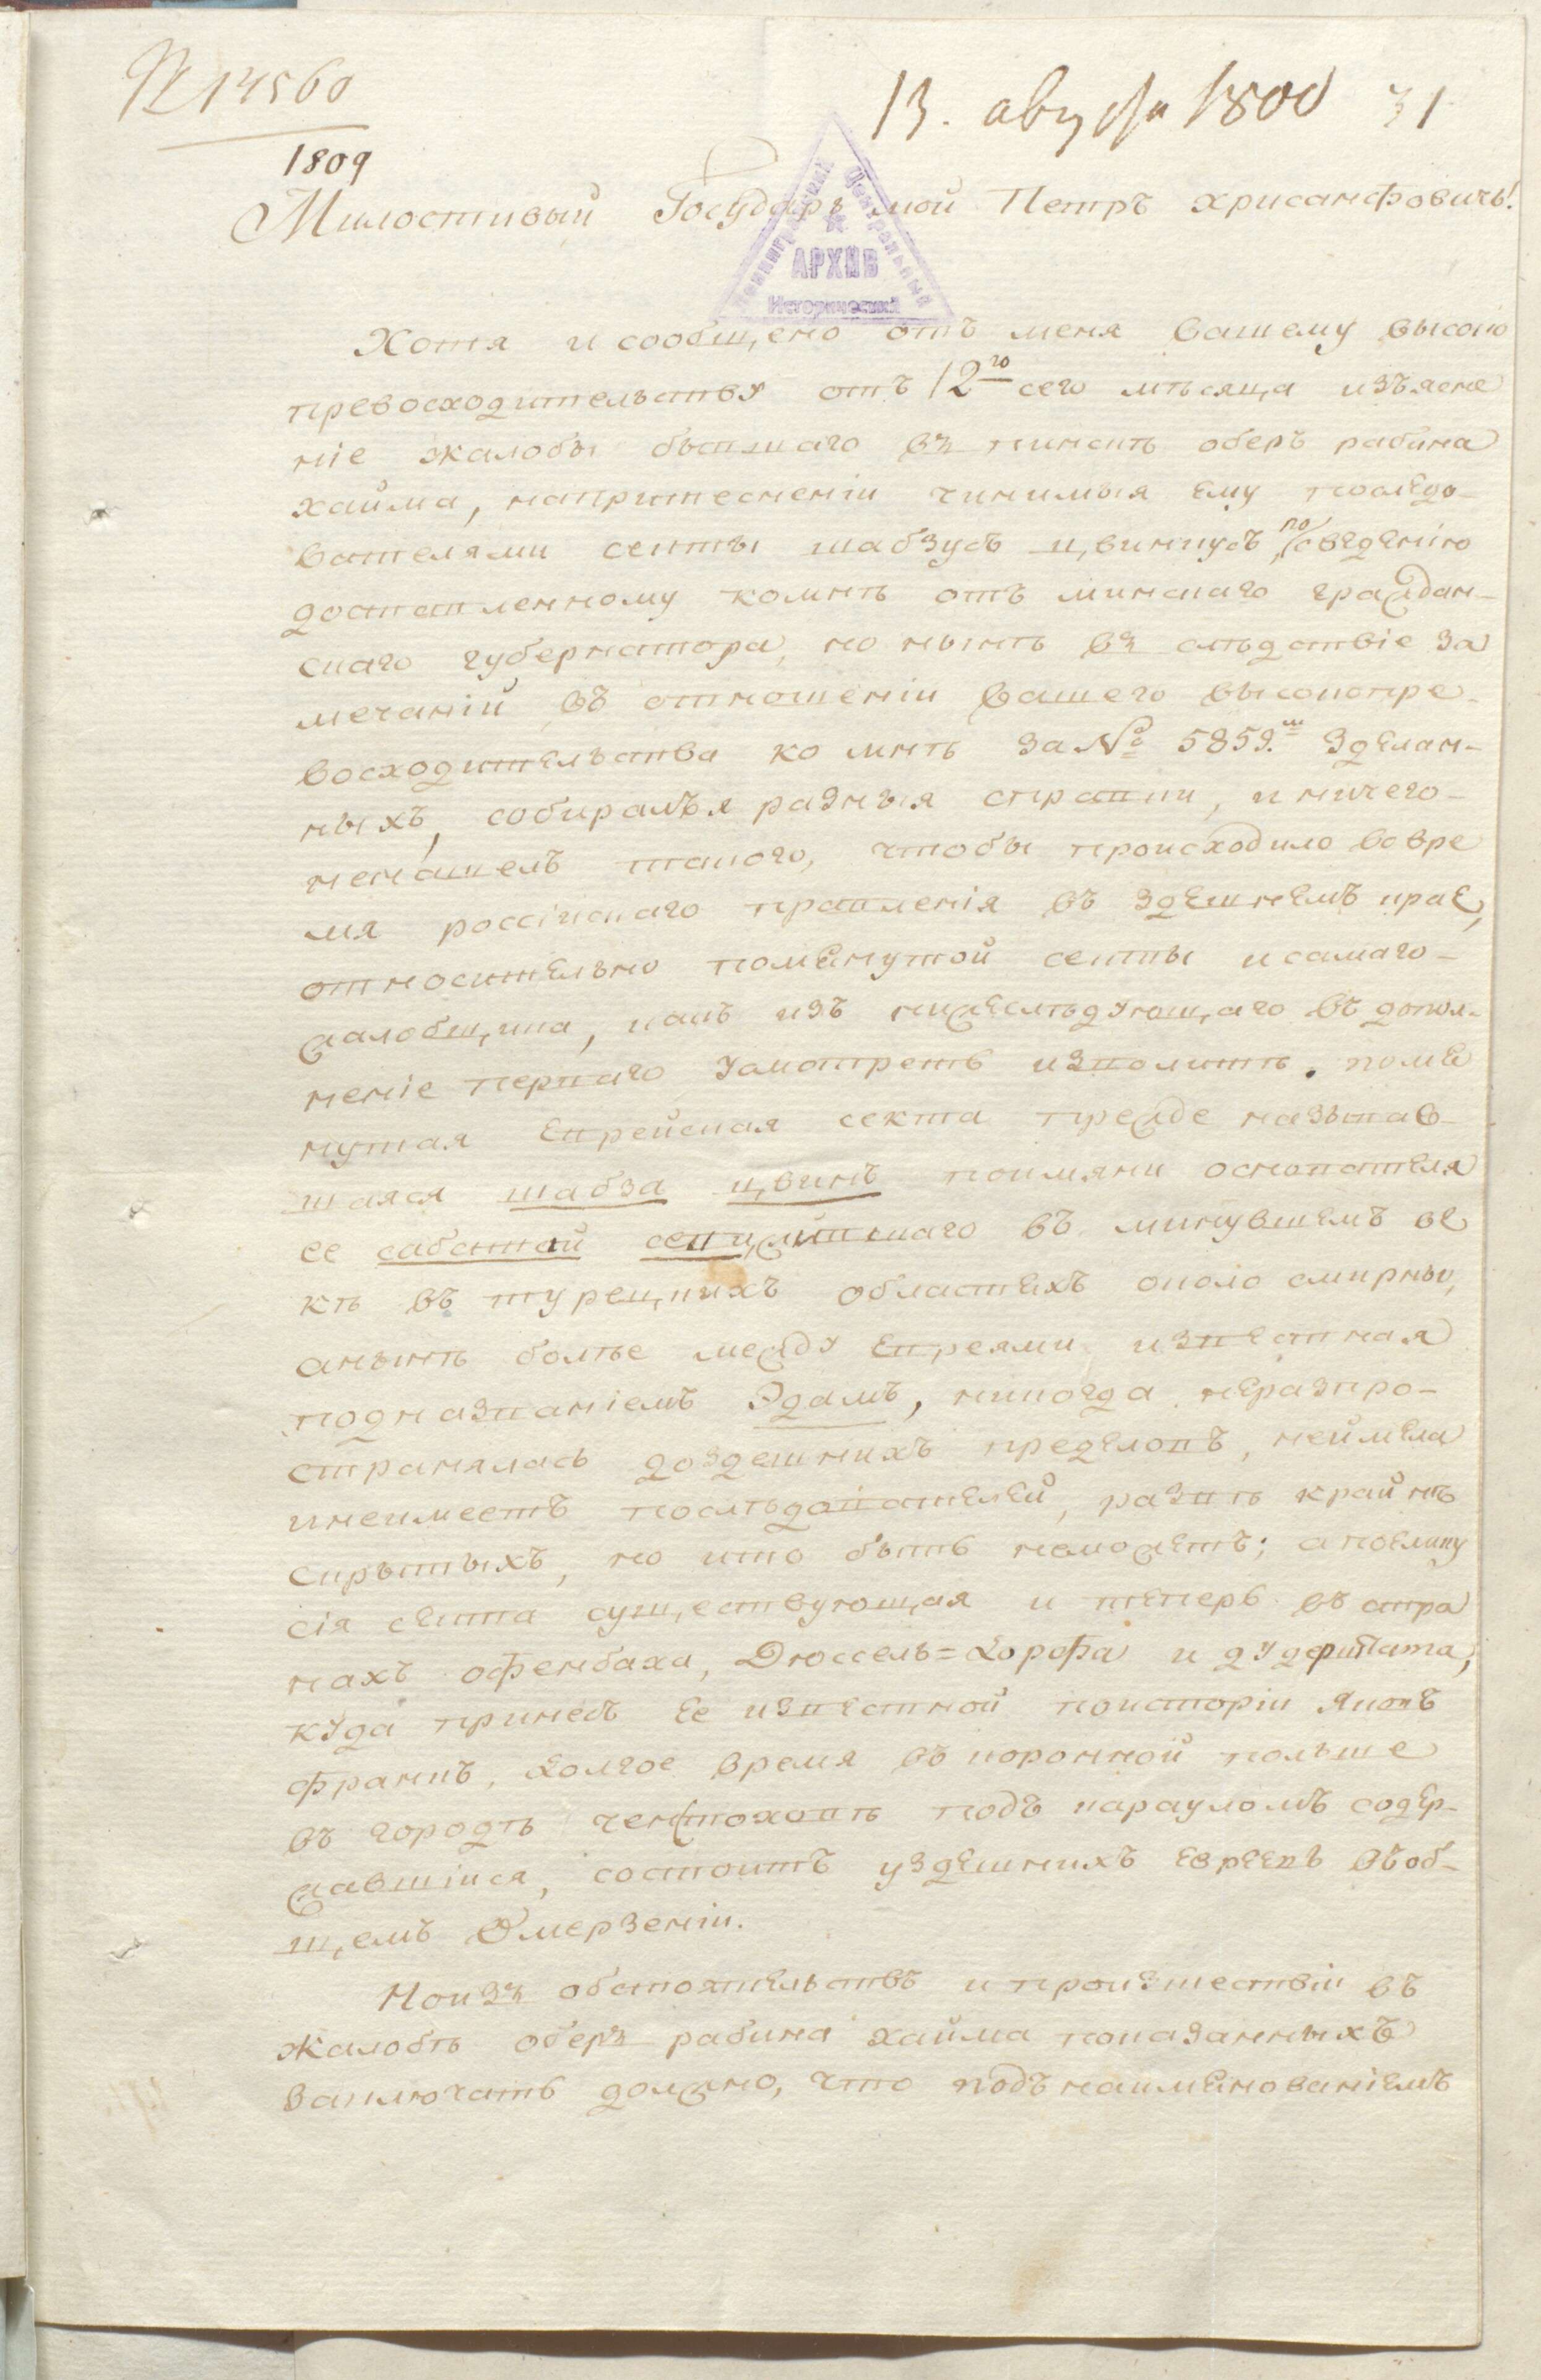 № 14560
1809
13. августа 1800 31
Милостивый Государь мой Петръ хрисанфовичь!
Ленинградский Центральный
АРХИВ
Исторический
Хотя и сообщено отъ меня вашему высоко
превосходительству отъ 12го сего мѣсяца изъясне
ніе жалобы бывшаго въ минскѣ оберъ рабина
хайма, напритесненіи чинимыя ему последо-
вателями секты шабзусъ цвинкусъ, по сведенію
доставленному комнѣ отъ минскаго граждан-
скаго губернатора, но нынѣ въ слѣдствіе за
мечаній въ отношеніи вашего высокопре-
восходительства ко мнѣ за № 5859.м зделан-
ныхъ, собиралъ я разныя справки, и ничего-
ненашелъ такого, чтобы происходило вовре
мя россійскаго правленія въ здешнемъ крае,
относительно помянутой секты и самаго-
жалобщика, какъ изъ нижеслѣдующаго въ допол-
неніе перваго усмотреть изволитѣ. поме
нутая Еврейская секта прежде называв-
шаяся шабза цвинъ поимяни основателя
ее сабатай сепи, жившаго въ минувшемъ ве
кѣ въ турецкихъ областехъ около смирны,
анынѣ болѣе между Евреями извѣстная
подназваніемъ Эдамъ, никогда неразпро-
странялась доздешнихъ пределовъ, неимела
инеимеетъ послѣдователей, развѣ крайнѣ
скрытыхъ, но кто быть неможетъ; апоелику
сія секта существующая и теперь въ стра
нахъ офенбаха, Дюссель=Дорфа и
куда принесъ ее извѣстной поисторіи Яковъ
франкъ, долгое время въ коронной польше
въ городѣ ченстоховѣ подъ карауломъ содер-
жавшійся, состоитъ уздешнихъ евреевъ въоб-
щемъ омерзеніи.
Ноизъ обстоятельствъ и произшествіи въ
жалобѣ оберъ рабина хайма показанныхъ
заключать должно, что подънаименованіемъ